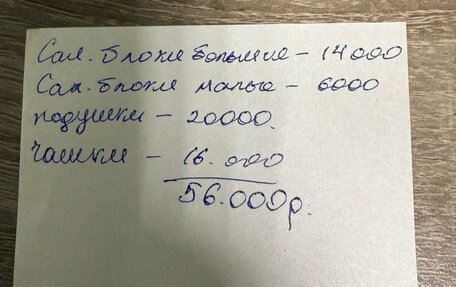 Сал. блоки большие – 14000
Сал. блоки малые – 6000
подушки – 20000.
чашки – 16.000
56.000р.